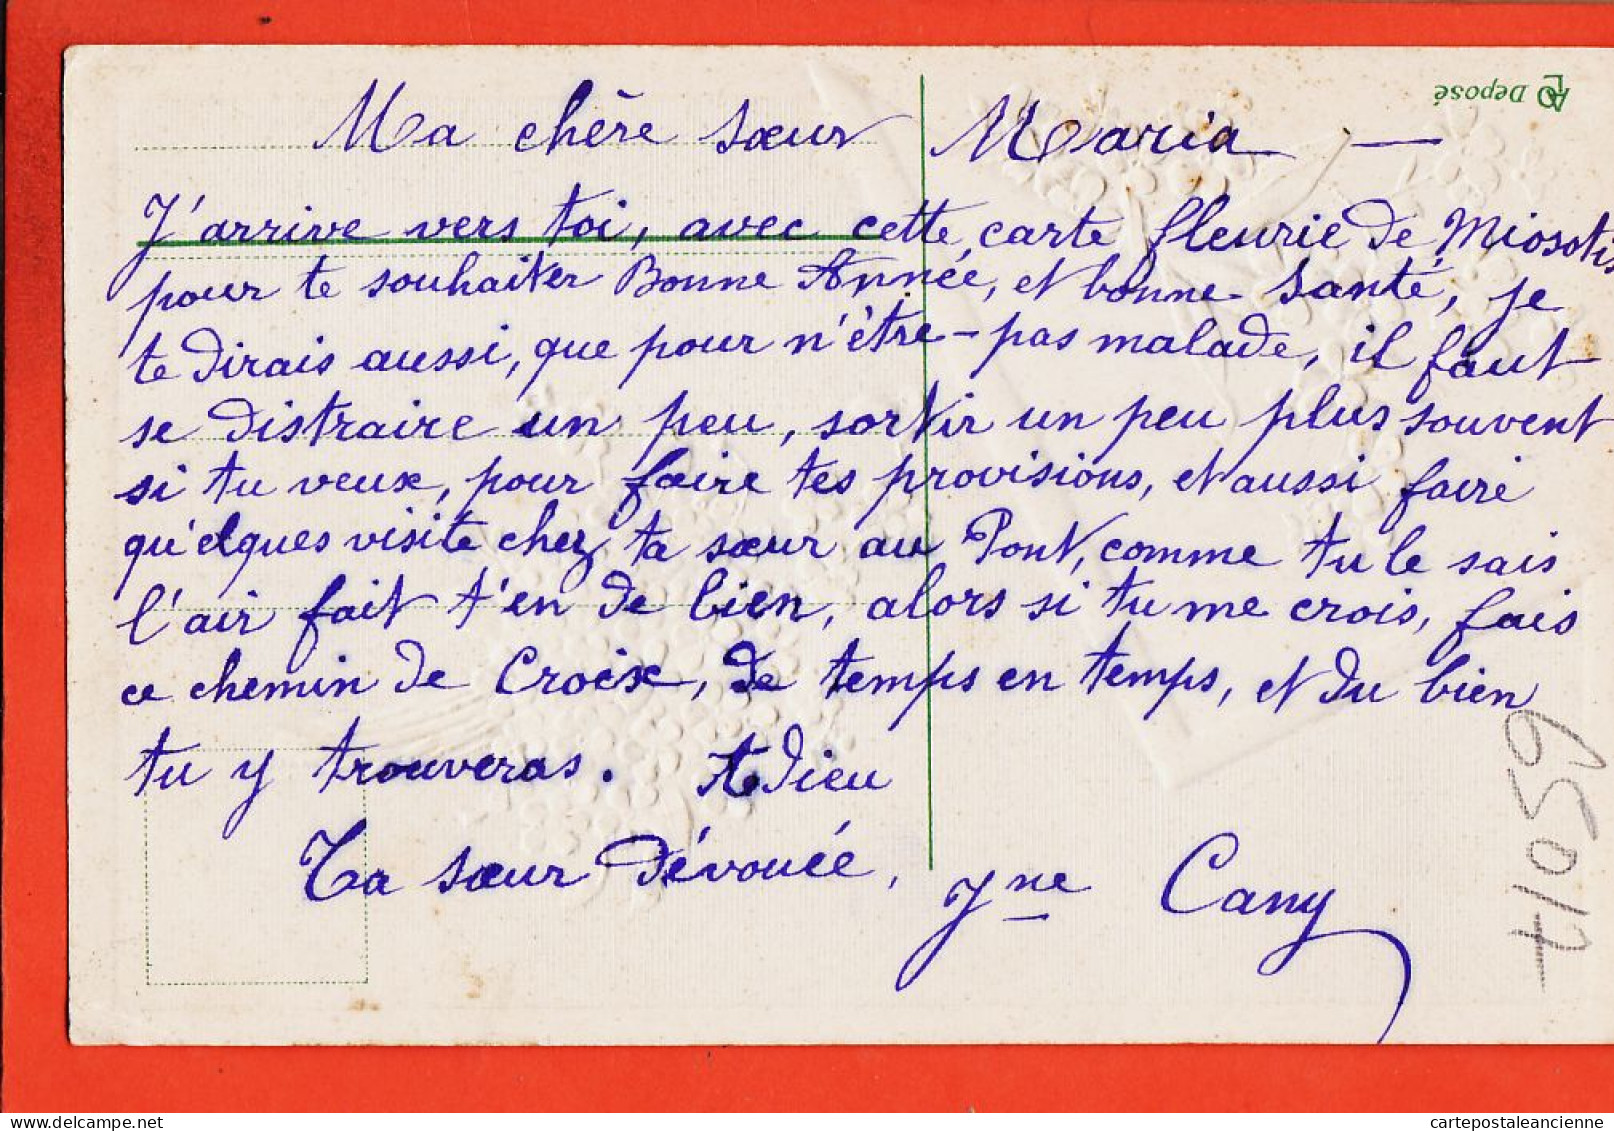 Déposé
Ma chère sœur Maria —
J'arrive vers toi, avec cette carte fleurie de Miosotis
pour te souhaiter Bonne Année, et bonne Santé, je
te dirais aussi, que pour n'être-pas malade, il faut
se distraire un peu, sortir un peu plus souvent
si tu veux, pour faire tes provisions, et aussi faire
qu'elques visite chez ta sœur au Pont, comme tu le sais
l'air fait t'en de bien, alors si tu me crois, fais
ce chemin de Croix, de temps en temps, et du bien
tu y trouveras. Adieu
Ta sœur dévouée, Jne Cany
cartepostaleancienne